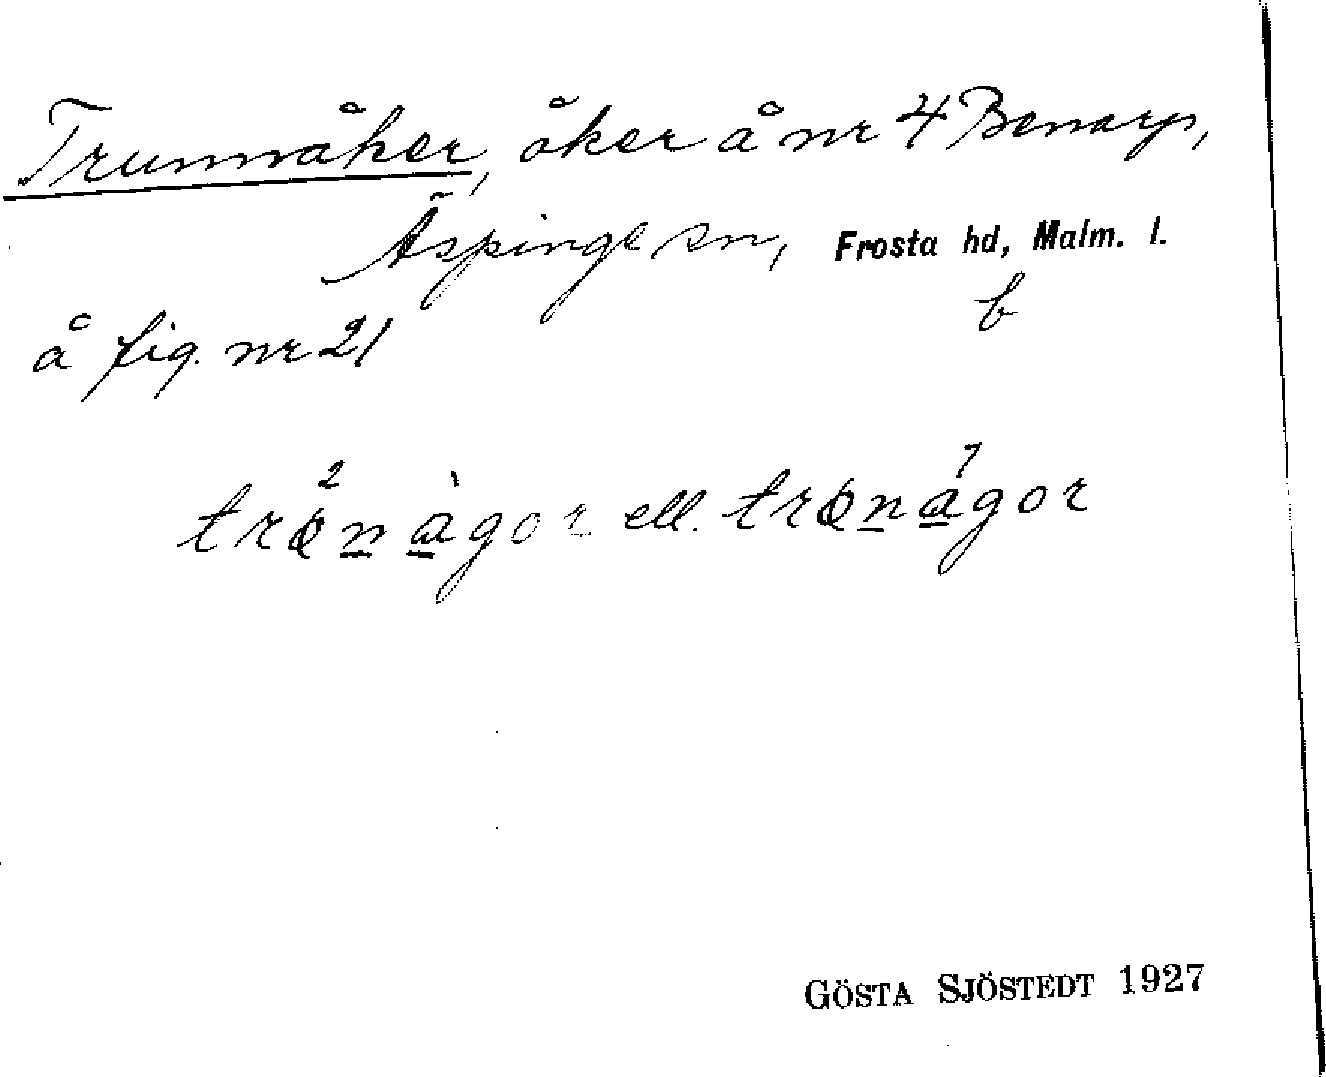 Trumnåker, åker å nr 4 Benarp,
Äspinge sn, Frosta hd, Malm. l.
b
å fig. nr 21
ell.
GÖSTA SJÖSTEDT 1927